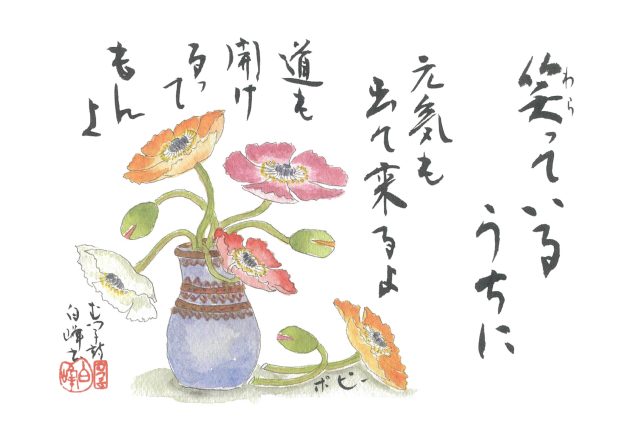 笑っている
わら
うちに
元気も
出て来るよ
道も
開け
るって
もん
よ
ポピー
むつ子詩
白峰